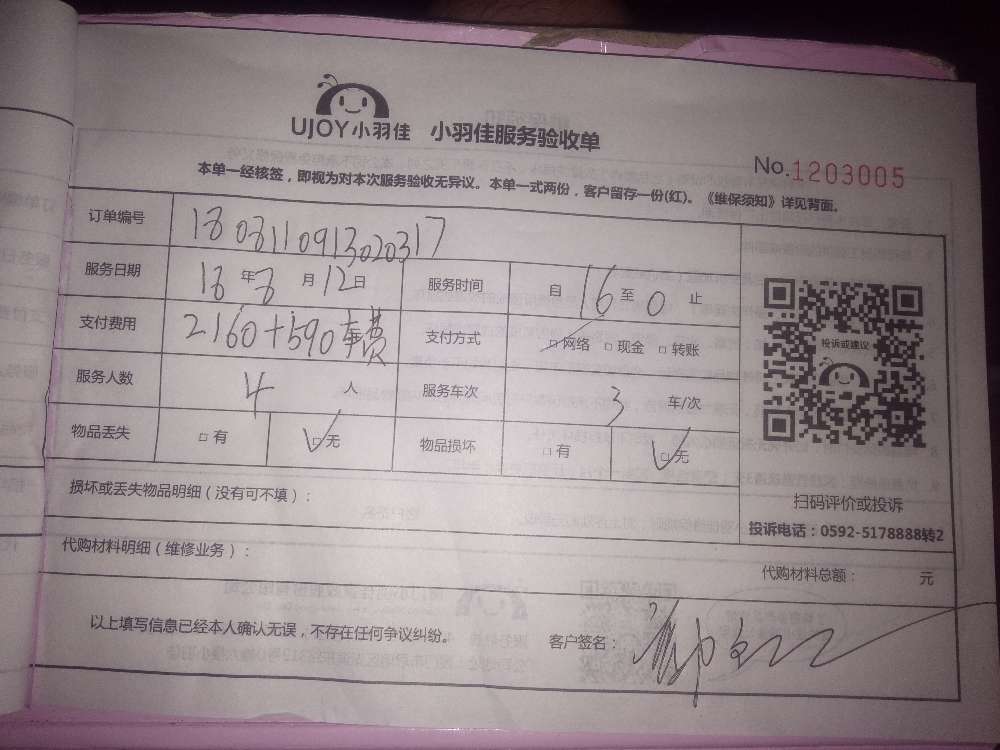 UJOY小羽佳 小羽佳服务验收单
No.1203005
本单一经核签，即视为对本次服务验收无异议。本单一式两份，客户留存一份(红)。《维保须知》详见背面。
订单编号 1808110913020317
服务日期 18年8月12日 服务时间 自16至0止
支付费用 2160+590车费 支付方式 □网络 □现金 □转账
服务人数 4人 服务车次 3车/次
物品丢失 □有 □无 物品损坏 □有 □无
投诉或建议
扫码评价或投诉
投诉电话：0592-5178888转2
损坏或丢失物品明细（没有可不填）：
代购材料明细（维修业务）：
代购材料总额： 元
以上填写信息已经本人确认无误，不存在任何争议纠纷。 客户签名：